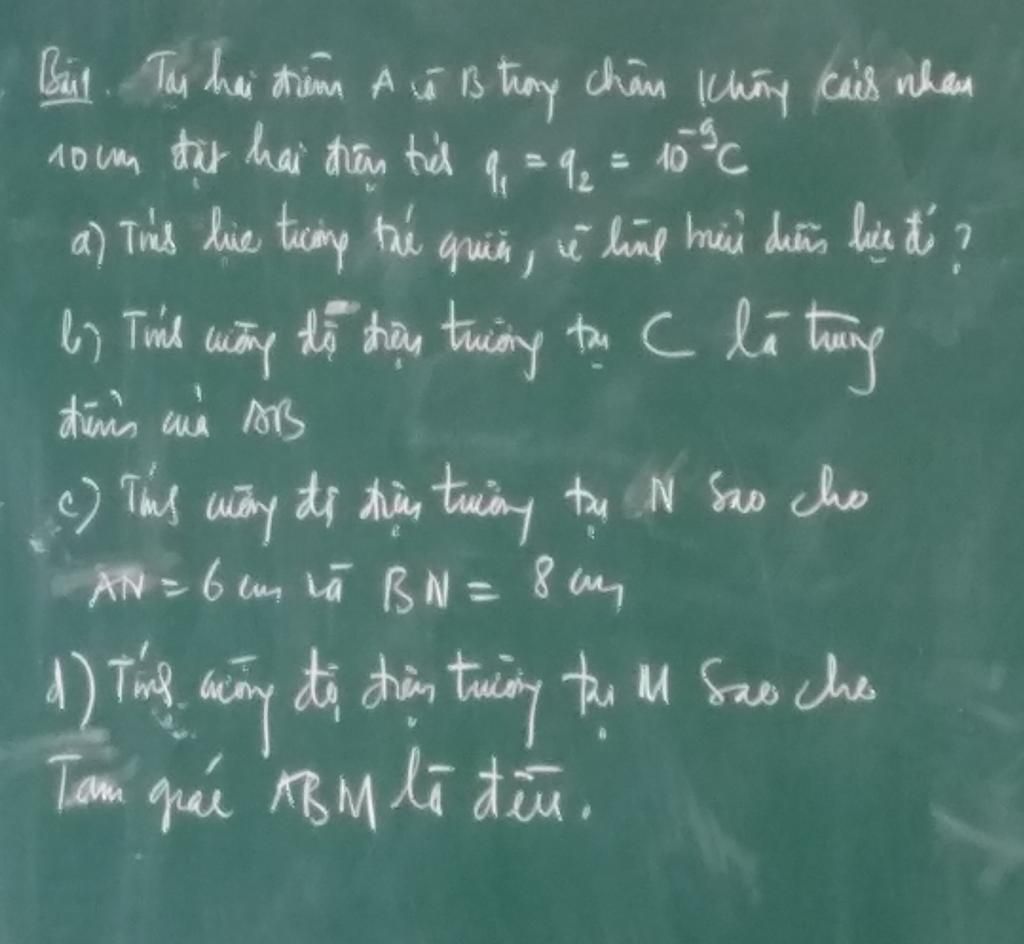 Bài 1. Tại hai điểm A và B trong chân không cách nhau
10cm đặt hai điện tích q₁ = q₂ = 10⁻⁹C
a) Tính lực tương tác giữa, vẽ hình biểu diễn lực đó ?
b) Tính cường độ điện trường tại C là trung
điểm của AB
c) Tính cường độ điện trường tại N sao cho
AN = 6 cm và BN = 8 cm
d) Tính cường độ điện trường tại M sao cho
Tam giác ABM là đều.